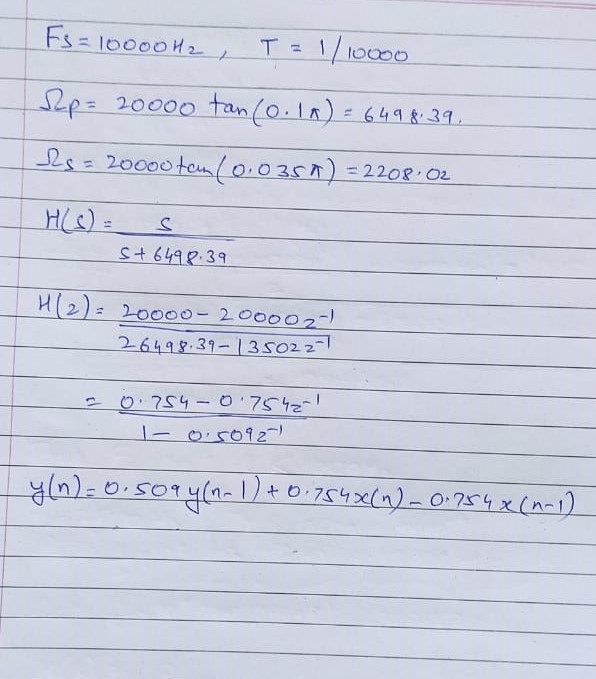 Fs = 10000Hz, T = 1/10000
Ωp = 20000 tan(0.1π) = 6498.39.
Ωs = 20000tan(0.035π) = 2208.02
H(s) = s
s + 6498.39
H(z) = 20000 - 20000z⁻¹
26498.39 - 13502z⁻¹
= 0.754 - 0.754z⁻¹
1 - 0.509z⁻¹
y(n) = 0.509y(n-1) + 0.754x(n) - 0.754x(n-1)